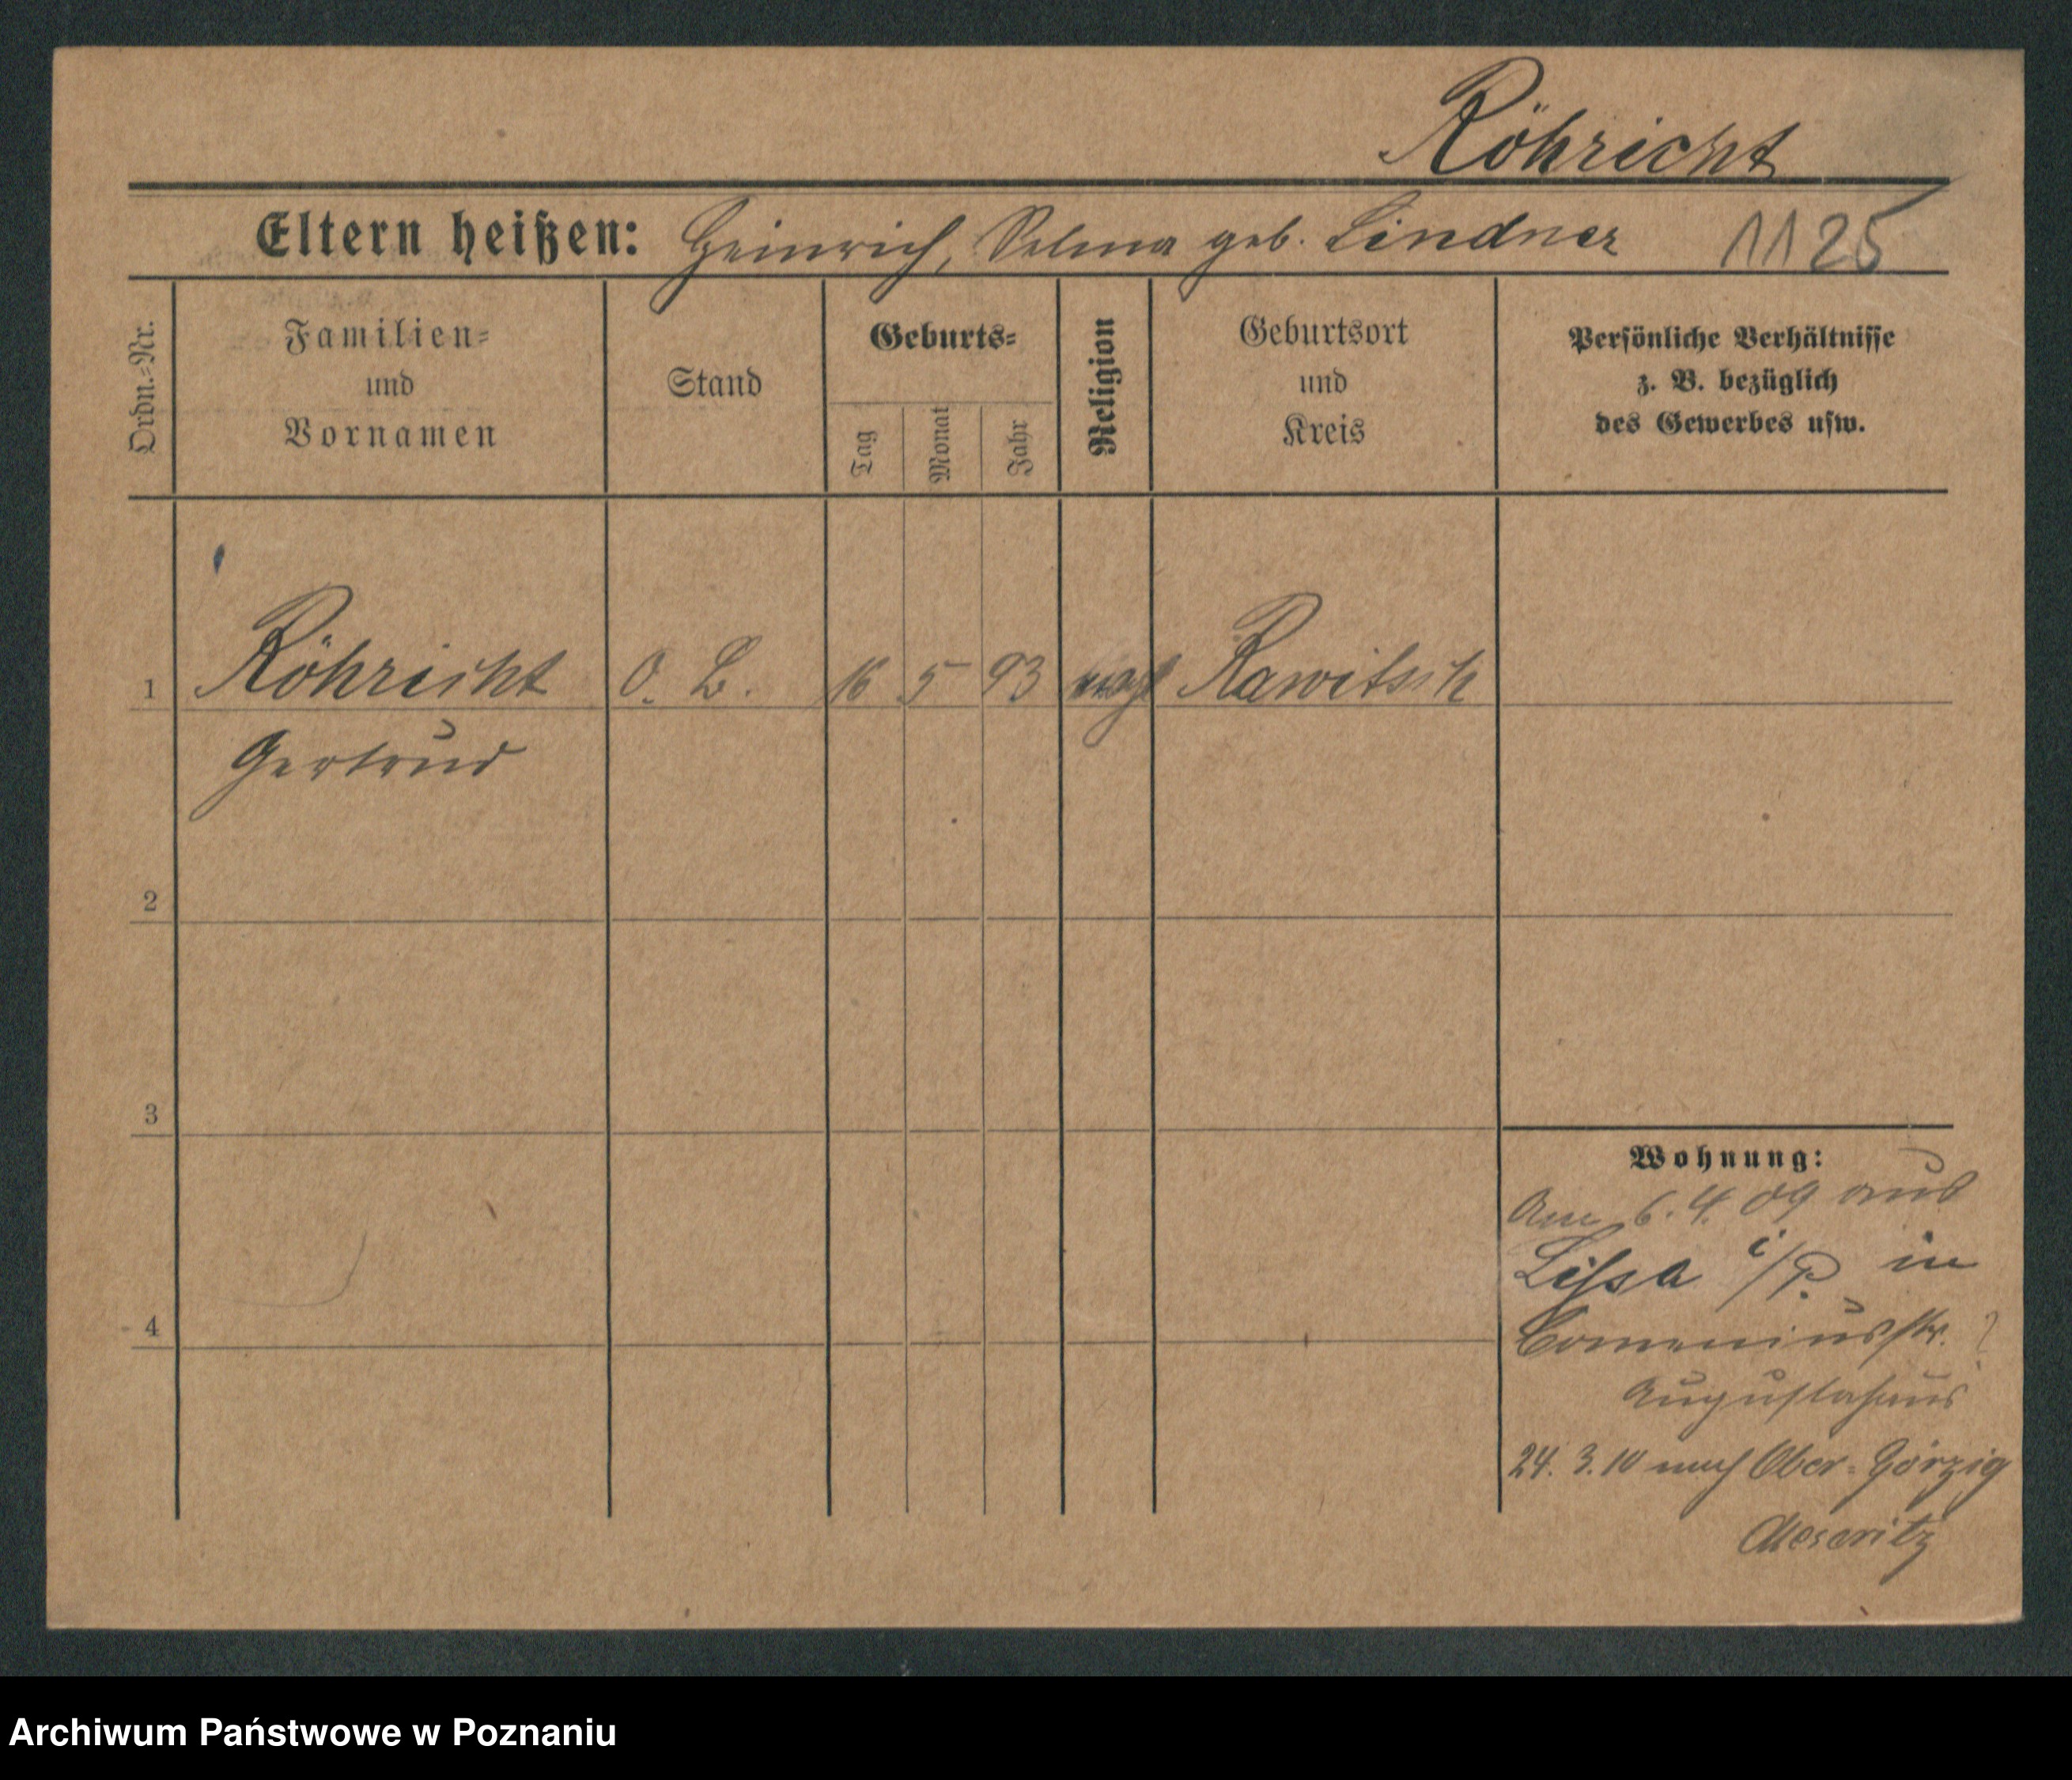 Röhricht
Eltern heißen: Heinrich, Selma geb. Lindner 1125
Ordn.=Nr.
Familien=
und
Vornamen
Stand
Geburts=
Tag
Monat
Jahr
Religion
Geburtsort
und
Kreis
Persönliche Verhältnisse
z. B. bezüglich
des Gewerbes usw.
1 Röhricht O. L. 16 5 93 Rawitsch
Gertrud
2
3
4
Wohnung:
Am 6.4.09 aus
Lissa i/P. in
Comeniusstr. ?
Augustahaus
24.3.10 nach Ober-Görzig
Meseritz
Archiwum Państwowe w Poznaniu